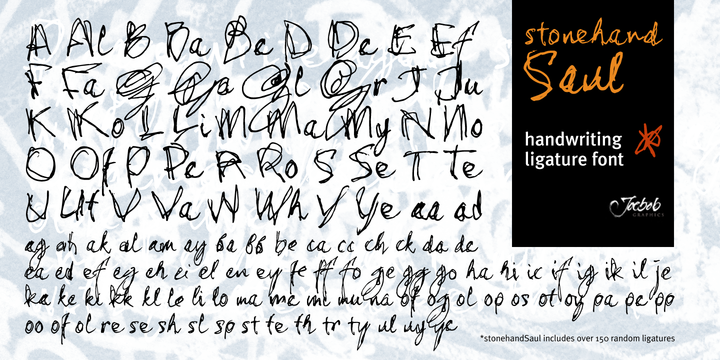 A Al B Ba Be D De E Ef
F Fa G Ga Gl Gr J Ju
K Ko L Li M Ma My N No
O Of P Pe R Ro S Se T Te
U Uf V Va W Wh Y Ye aa ad
ag ah ak al am ay ba bb be ca cc ch ck da de
ea ed ef eg eh ei el en ey fe ff fo ge gg go ha hi ic if ig ik il je
ka ke ki kk kl le li lo ma me mi mu na of og ol op os ot oy pa pe pp
oo of ol re se sh sl sp st te th tr ty ul uy ye
stonehand
Saul
handwriting
ligature font
Jocbob
GRAPHICS
*stonehandSaul includes over 150 random ligatures